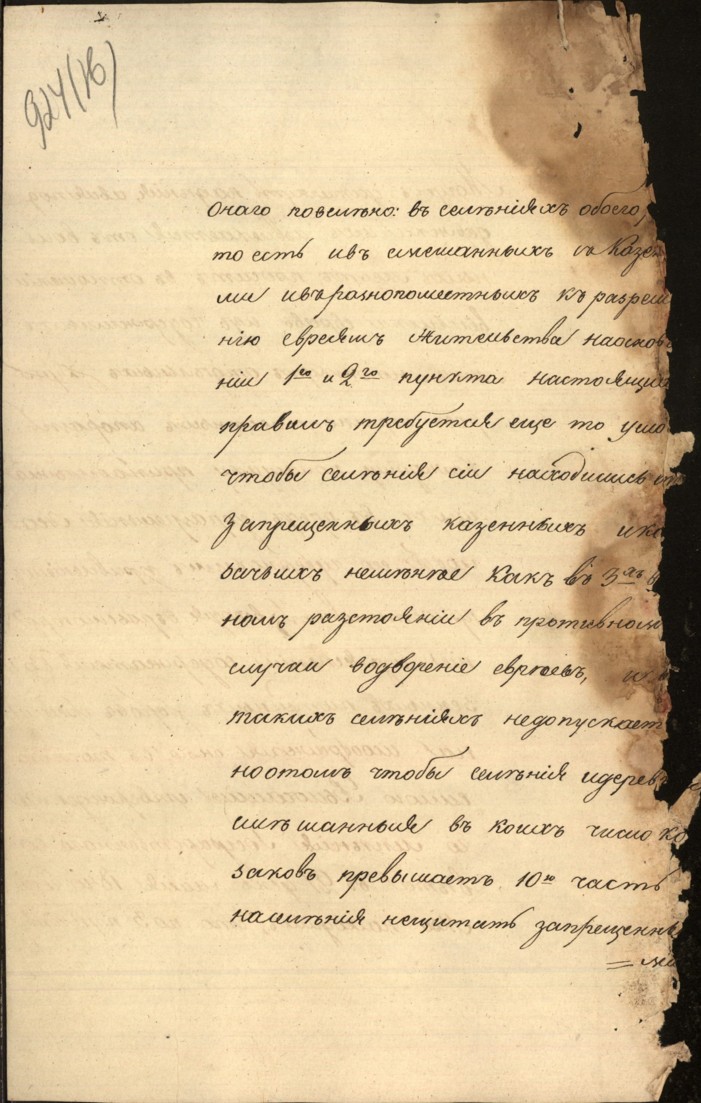 924(16)
онаго повелѣно: въ селѣніяхъ обоего
то есть ивъ смешанныхъ съ Казен
ми ивъразнопоместныхъ къ разреш
нію евреямъ жительства наоснов
ніи 1го и 2го пункта настоящи
правилъ требуется еще то усло
чтобы селѣнія сіи находились
запрещенныхъ казенныхъ ика
зачьихъ неменѣе Какъ въ 3хъ
номъ разстояніи въ противном
случаи водвореніе евреевъ,
такихъ селѣніяхъ недопускает
ноотомъ чтобы селѣнія идерев
смѣшанныя въ коихъ число ко
заковъ превышаетъ 10ю часть
населѣнія нещитать запрещенн
= ми